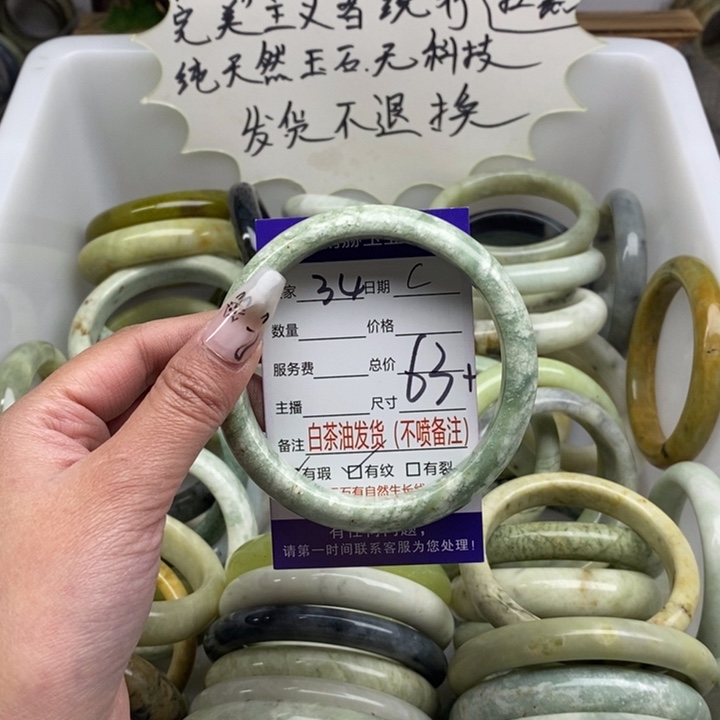 完美主义者绕行
纯天然玉石.无科技
发货不退换
家 34 日期 C
数量 价格
服务费 总价
主播 尺寸 63+
备注 白茶油发货（不喷备注）
有瑕 口有纹 口有裂
玉石有自然生长线
有任何问题，
请第一时间联系客服为您处理！